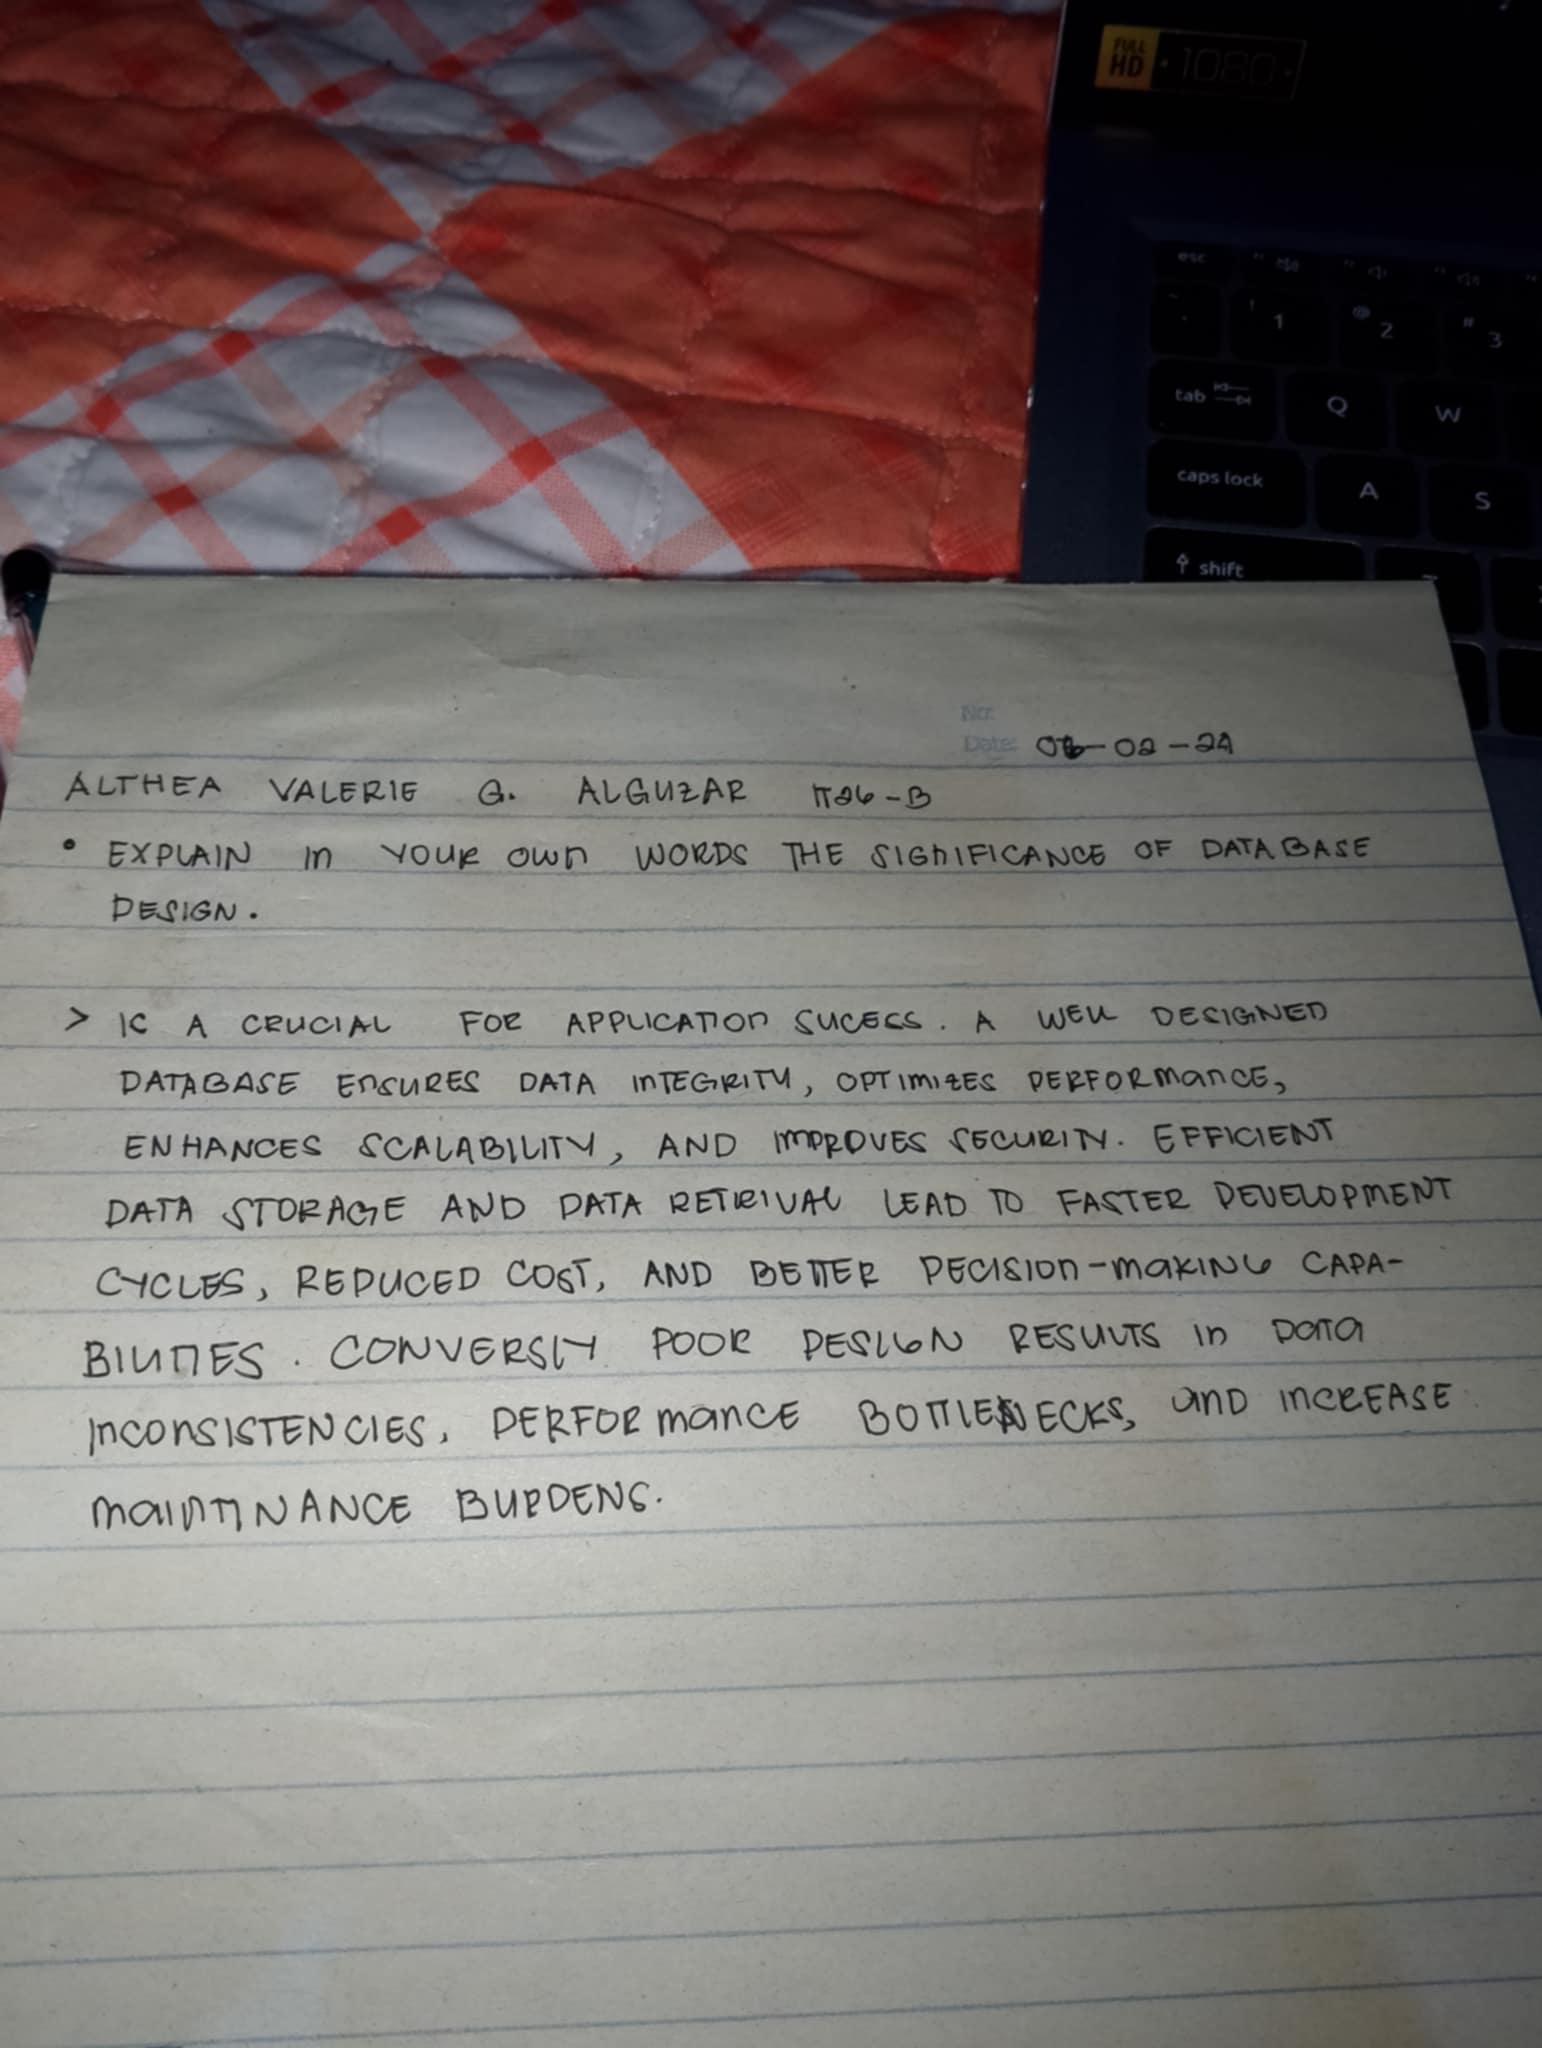 FULL HD · 1080 ·
esc
! 1 @ 2 # 3
tab Q W
caps lock A S
shift
No:
Date: 06-02-24
ALTHEA VALERIE G. ALGUZAR IT26-B
• EXPLAIN IN YOUR OWN WORDS THE SIGNIFICANCE OF DATABASE
DESIGN.
> IS A CRUCIAL FOR APPLICATION SUCESS. A WELL DESIGNED
DATABASE ENSURES DATA INTEGRITY, OPTIMIZES PERFORMANCE,
ENHANCES SCALABILITY, AND IMPROVES SECURITY. EFFICIENT
DATA STORAGE AND DATA RETRIVAL LEAD TO FASTER DEVELOPMENT
CYCLES, REDUCED COST, AND BETTER DECISION-MAKING CAPA-
BILITIES. CONVERSLY POOR DESIGN RESULTS IN DATA
INCONSISTENCIES, PERFORMANCE BOTTLENECKS, AND INCREASE
MAINTINANCE BURDENS.